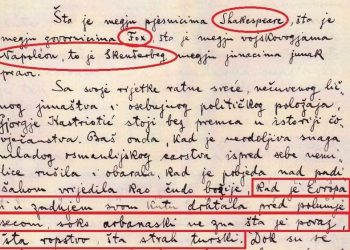 Šta je megju pjesnicima Shakespeare, šta je
megju govornicima Fox, šta je megju vojskovogjama
Napoleon, to je Skenderbeg megju junacima junak
prava.
Sa svoje rijetke ratne sreće, nečuvenog lič
nog junaštva i osebujnog političkog položaja,
Gjorgje Kastriotić stoji bez premca u istoriji čo
vječanstva. Baš onda, kad je neodoljiva snaga
mladog osmanlijskog carstva ispred sebe nemi
lice rušila i obarala, kad je pobjeda nad padi
šahom vrijedila kao čudo božije, kad je Evropa
i u zadnjem svom kutu drhtala pred polumje
secom, soko arbanaski ne zna šta je poraz,
šta ropstvo, šta strah turski. Dok su se